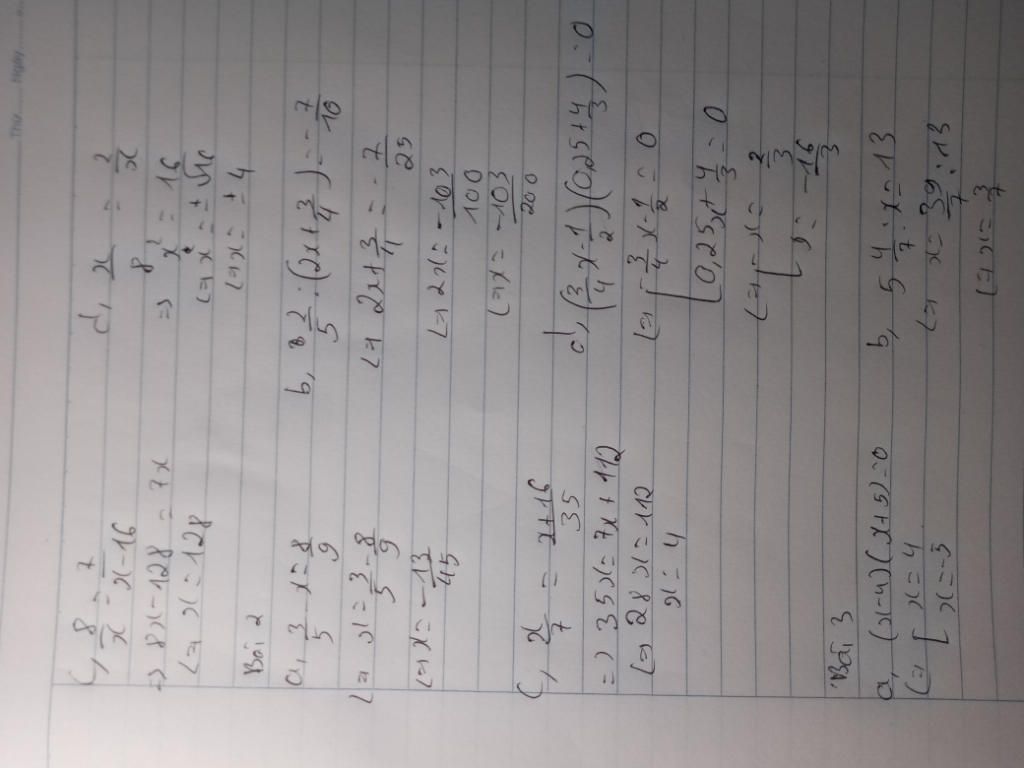 Thứ ..... Ngày .....
c, 8/x = 7/(x-16)
=> 8x-128 = 7x
<=> x = 128
d, x/8 = 2/x
=> x² = 16
<=> x = ±√16
<=> x = ±4
Bài 2
a, 3/5 - x = 8/9
<=> x = 3/5 - 8/9
<=> x = -13/45
b, 2/5 : (2x + 3/4) = -7/10
<=> 2x + 3/4 = -7/25
<=> 2x = -103/100
<=> x = -103/200
c, x/7 = (x+16)/35
=> 35x = 7x + 112
<=> 28x = 112
x = 4
d, (3/4 x - 1/2)(0,25x + 4/3) = 0
<=> [ 3/4 x - 1/2 = 0
[ 0,25x + 4/3 = 0
<=> [ x = 2/3
[ x = -16/3
Bài 3
a, (x-4)(x+5)=0
<=> [ x = 4
[ x = -3
b, 5 4/7 : x = 13
<=> x = 39/7 : 13
<=> x = 3/7